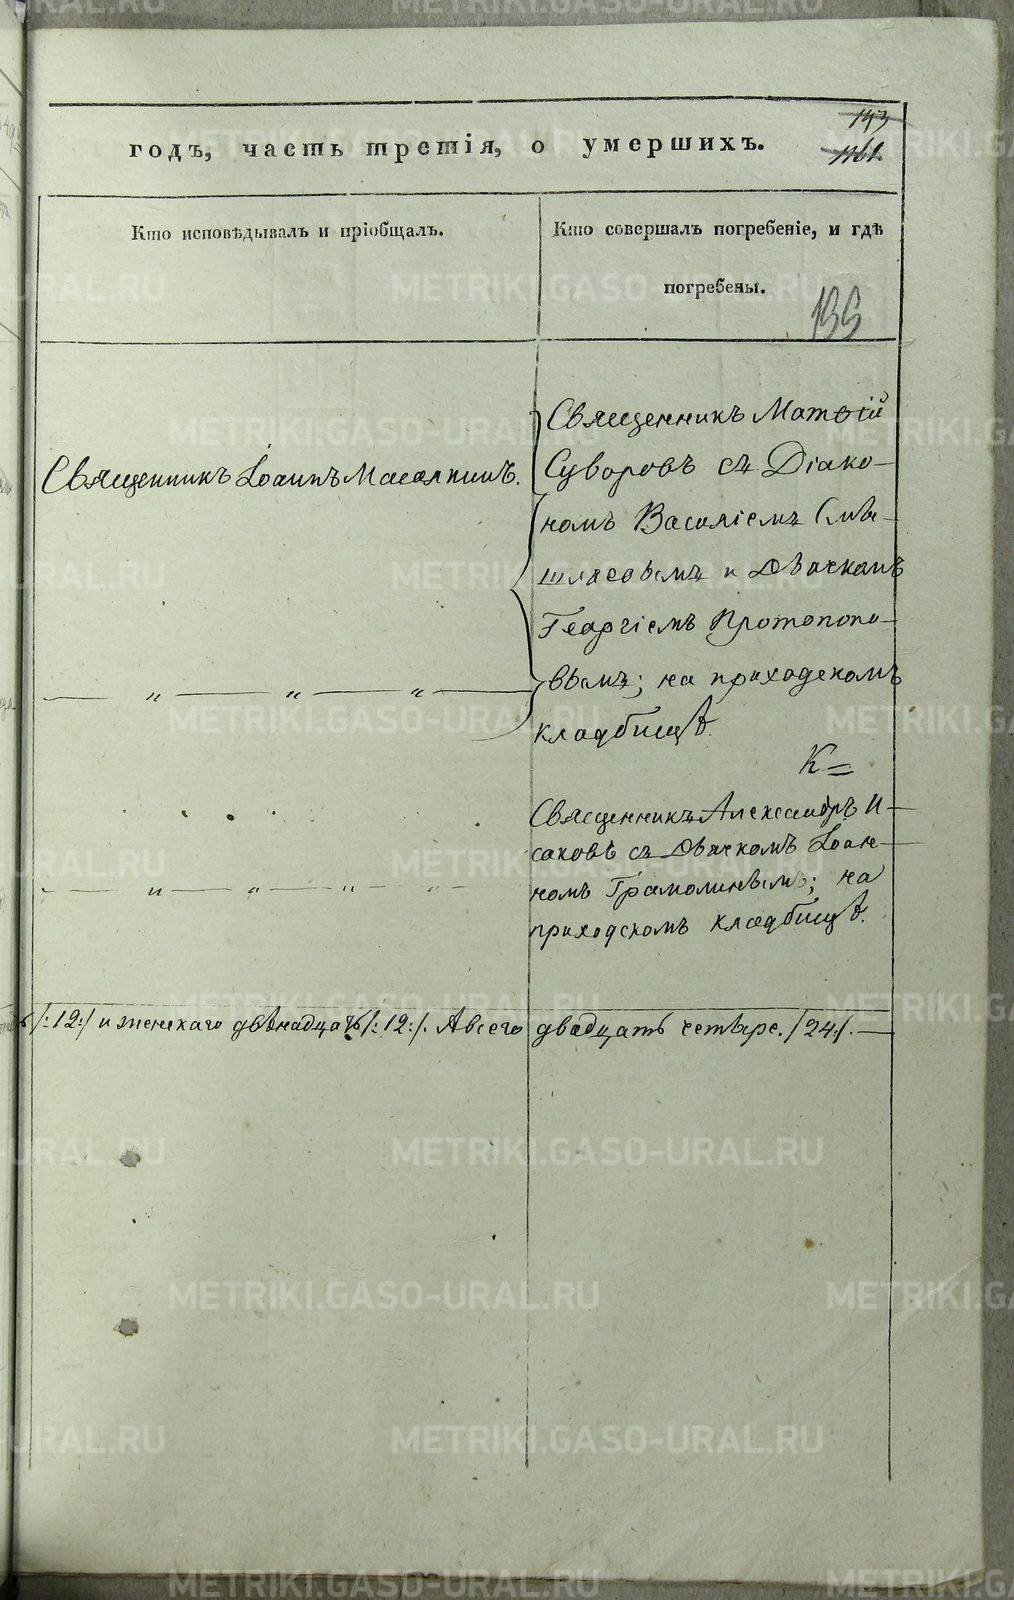 193
годъ, часть третія, о умершихъ.
1161.
Кто исповѣдывалъ и пріобщалъ.
Кто совершалъ погребеніе, и гдѣ
погребены.
Священникъ Матѳій
Священникъ Іоаннъ
Суворовъ съ Діако-
номъ Василіемъ
и Дьячкомъ
Георгіемъ Протопопо-
вымъ; на приходскомъ
— „ — „ — „ —
кладбищѣ.
К=
Священникъ Александръ И-
саковъ съ Дьячкомъ Іоан-
— „ — „ — „ — „ —
номъ Грамолинымъ; на
приходскомъ кладбищѣ.
/:12:/ и женскаго двѣнадцать /:12:/. А всего двадцать четыре. /24:/. —
METRIKI.GASO-URAL.RU